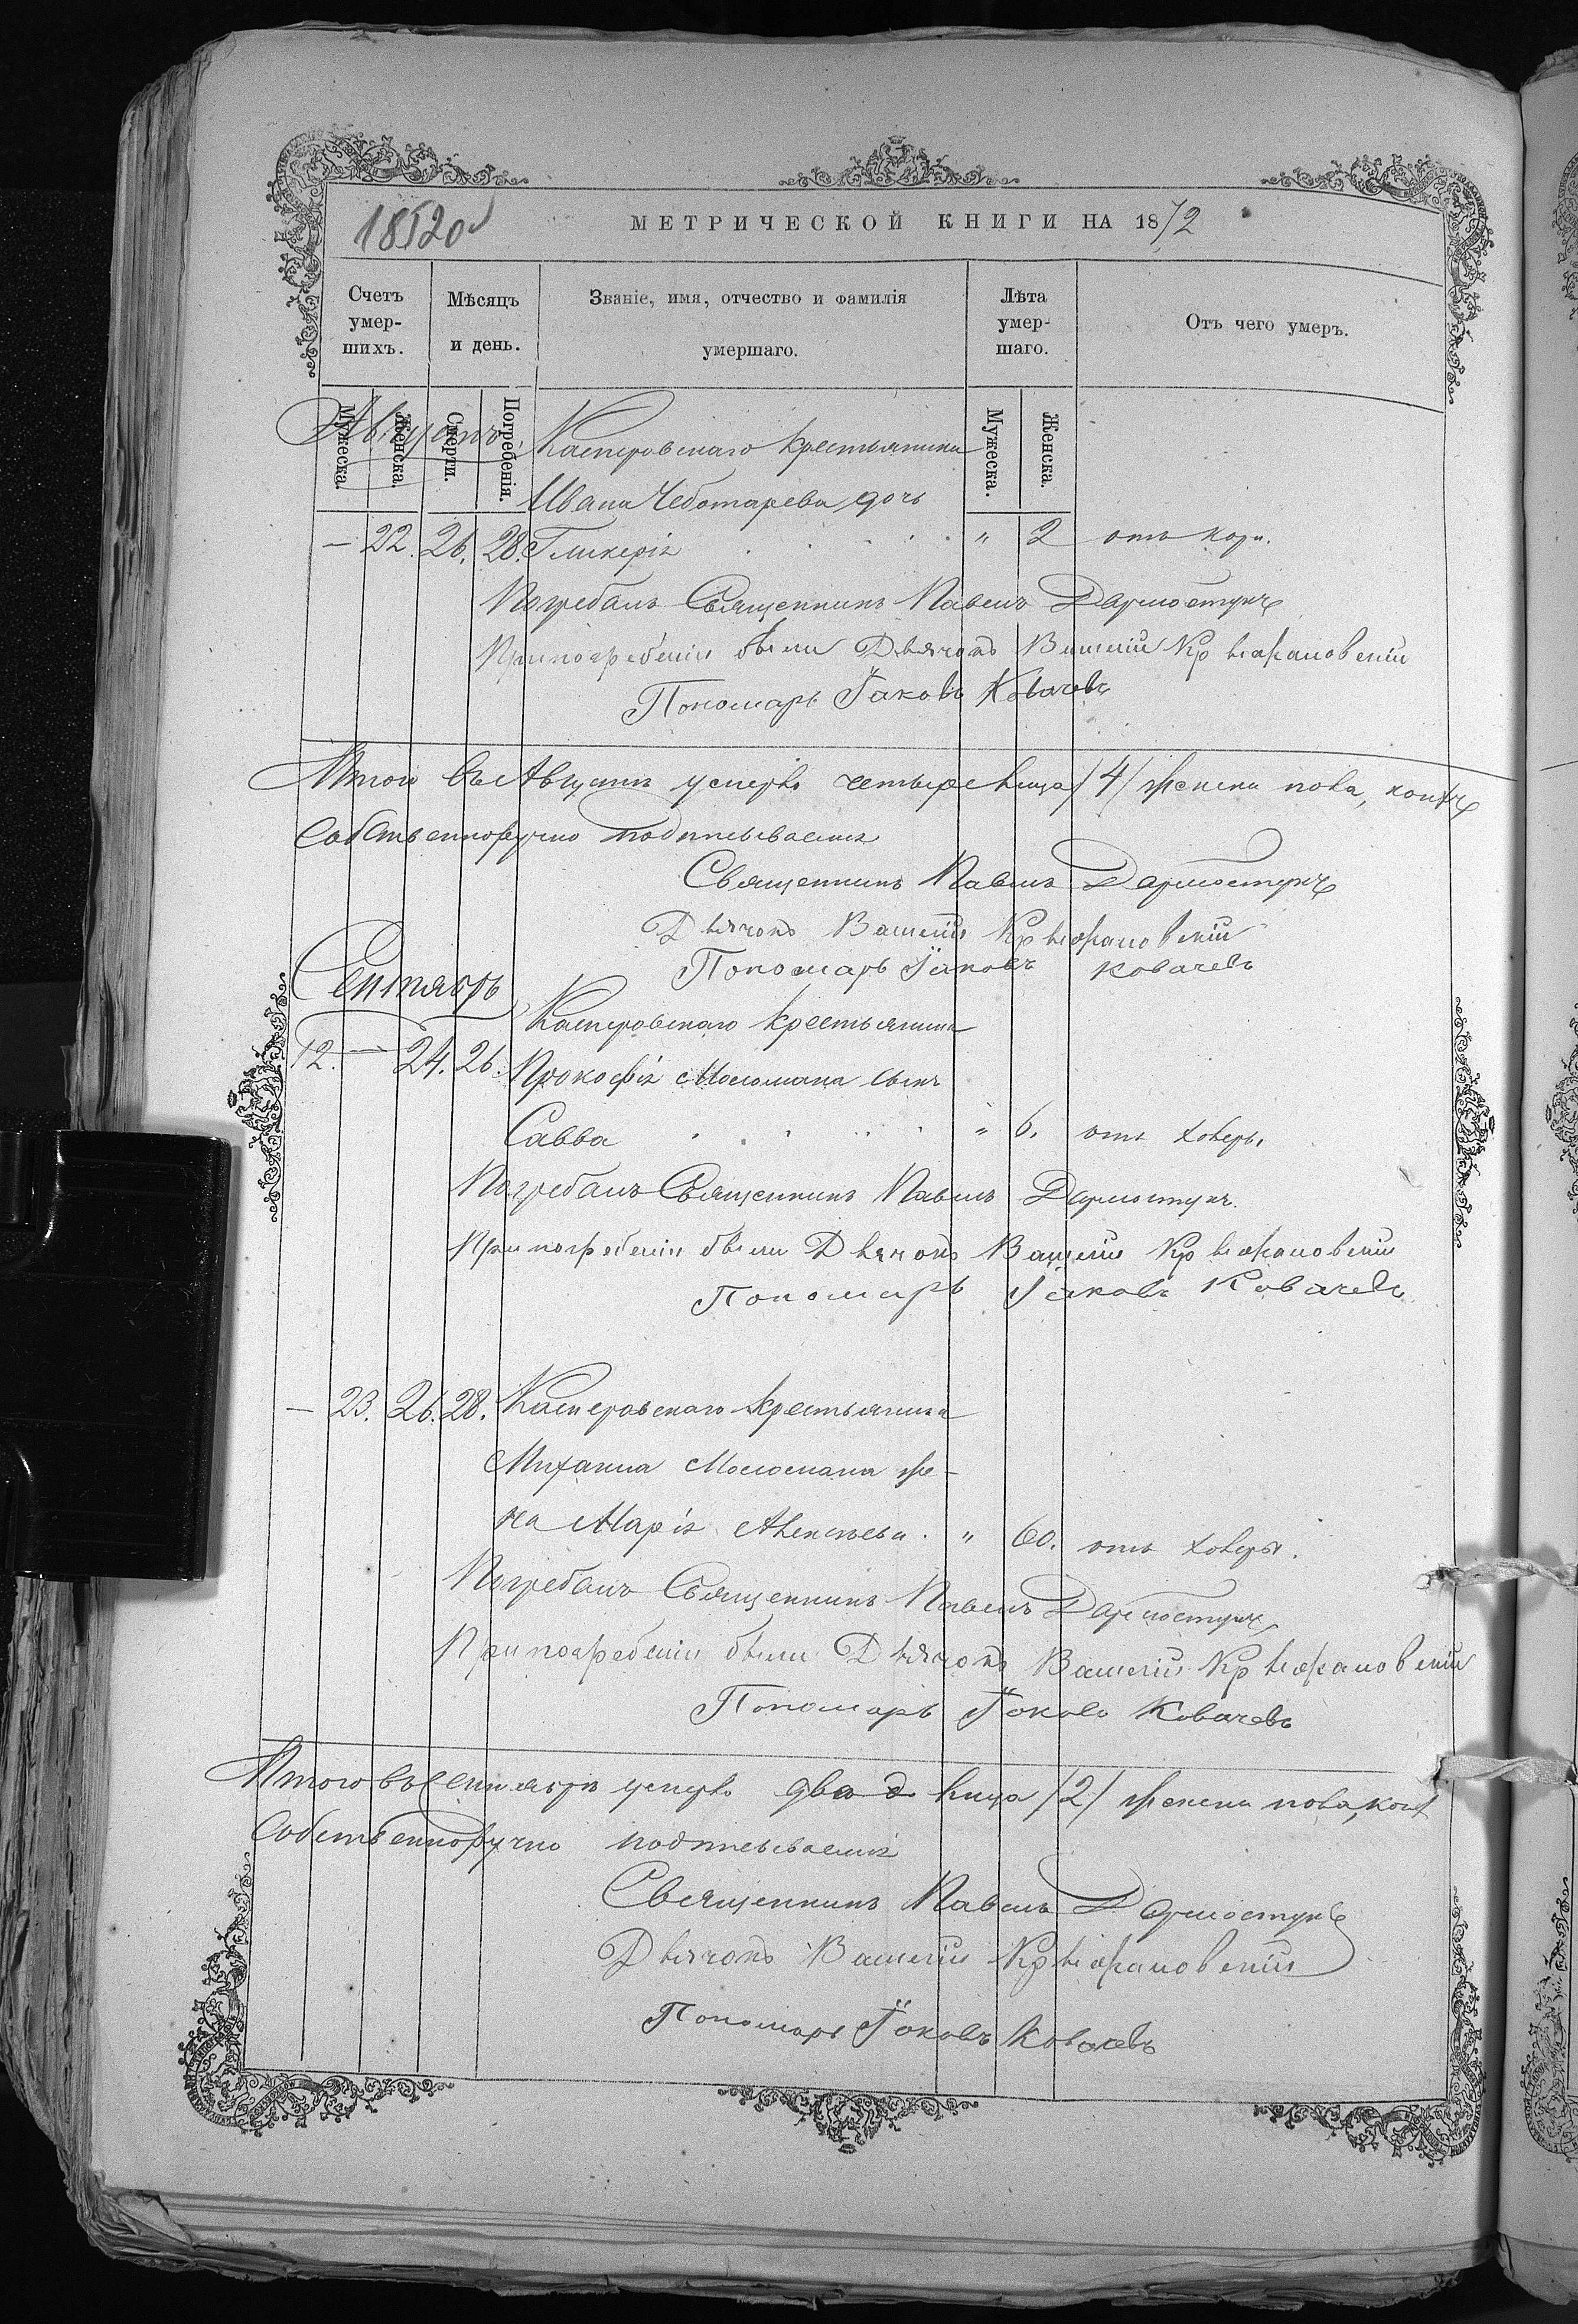 1852об
МЕТРИЧЕСКОЙ КНИГИ НА 1872
Счетъ умер-шихъ.
Мѣсяцъ и день.
Званіе, имя, отчество и фамилія умершаго.
Лѣта умер-шаго.
Отъ чего умеръ.
Мужеска. Женска. Смерти. Погребенія. Мужеска. Женска.
Августъ
Касперовскаго крестьянина
Ивана Чеботарева дочь
— 22. 26. 28. Гликерія . . . . . " 2 отъ кори.
Погребалъ Священникъ Павелъ
При погребеніи были Дьячокъ Василій
Пономарь Іаковъ Ковачевъ
Итого въ Августѣ умерло четыре лица /4/ женска пола,
Собственноручно подписываемся
Священникъ Павелъ
Дьячокъ Василій
Пономарь Іаковъ Ковачевъ
Сентябрь
Касперовскаго крестьянина
12. — 24. 26. Прокофія Мосомана сынъ
Савва . . . . . " 6. отъ холеры.
Погребалъ Священникъ Павелъ
При погребеніи были Дьячокъ Василій
Пономарь Іаковъ Ковачевъ
— 23. 26. 28. Касперовскаго крестьянина
Михаила Мосомана же-
на Марія Алексѣева . " 60. отъ холеры.
Погребалъ Священникъ Павелъ
При погребеніи были Дьячокъ Василій
Пономарь Іаковъ Ковачевъ
Итого въ Сентябрѣ умерло два лица /2/ женска пола,
Собственноручно подписываемся
Священникъ Павелъ
Дьячокъ Василій
Пономарь Іаковъ Ковачевъ